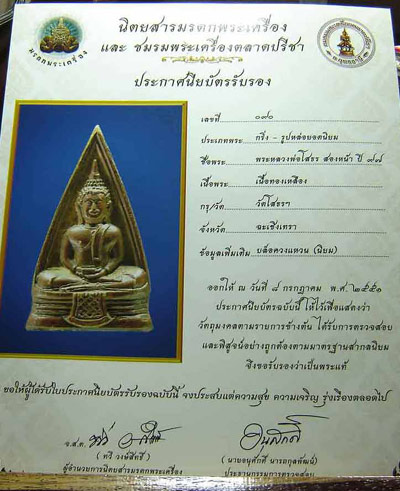 นิตยสารมรดกพระเครื่อง
และ ชมรมพระเครื่องตลาดปรีชา
มรดกพระเครื่อง
ประกาศนียบัตรรับรอง
เลขที่ ๐๙๐
ประเภทพระ กริ่ง - รูปหล่อยอดนิยม
ชื่อพระ พระหลวงพ่อโสธร สองหน้า ปี ๙๗
เนื้อพระ เนื้อทองเหลือง
กรุ/วัด วัดโสธรฯ
จังหวัด ฉะเชิงเทรา
ข้อมูลเพิ่มเติม บล็อควงแหวน (นิยม)
ออกให้ ณ วันที่ ๘ กรกฎาคม พ.ศ. ๒๕๕๑
ประกาศนียบัตรฉบับนี้ ให้ไว้เพื่อแสดงว่า
วัตถุมงคลตามรายการข้างต้น ได้รับการตรวจสอบ
และพิสูจน์อย่างถูกต้องตามมาตรฐานสากลนิยม
จึงขอรับรองว่าเป็นพระแท้
ขอให้ผู้ได้รับใบประกาศนียบัตรรับรองฉบับนี้ จงประสบแต่ความสุข ความเจริญ รุ่งเรืองตลอดไป
จ.ส.ต.
( ทวี วงษ์สิทธิ์ )
ผู้อำนวยการนิตยสารมรดกพระเครื่อง
( นายอนุศักดิ์ นารถกุลพัฒน์ )
ประธานกรรมการตรวจสอบ